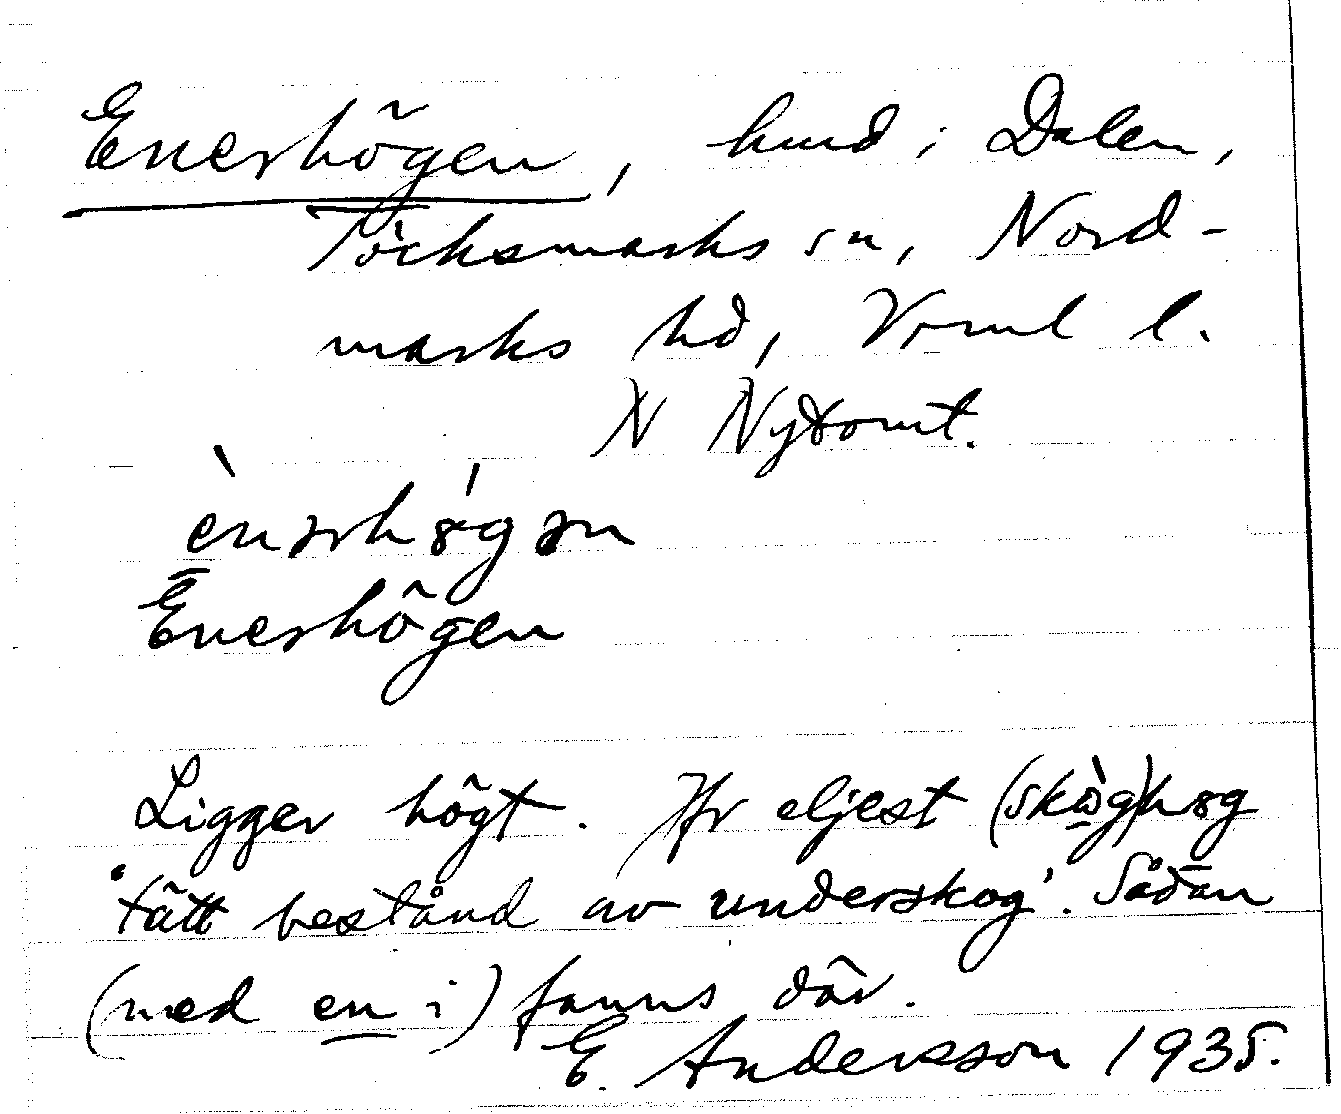 Enerhögen, hmd i Dalen,
Töcksmarks sn, Nord-
marks hd, Värml l.
N Nytomt.
Enerhögen
Ligger högt. Jfr eljest (skòg)høg
'tätt bestånd av underskog'. Sådan
(med en i) fanns där.
E. Andersson 1935.